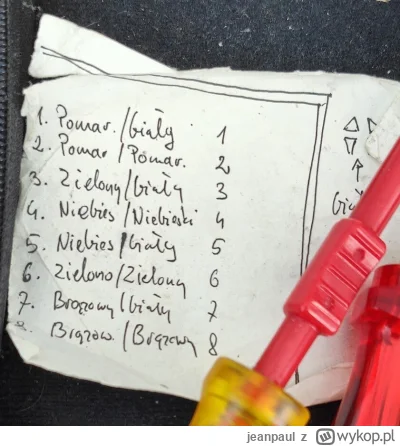 1. Pomar./biały 1
2. Pomar/Pomar. 2
3. Zielony/biały 3
4. Niebies/Niebieski 4
5. Niebies/biały 5
6. Zielono/Zielony 6
7. Brązowy/biały 7
8. Brązow./Brązowy 8
jeanpaul z wykop.pl